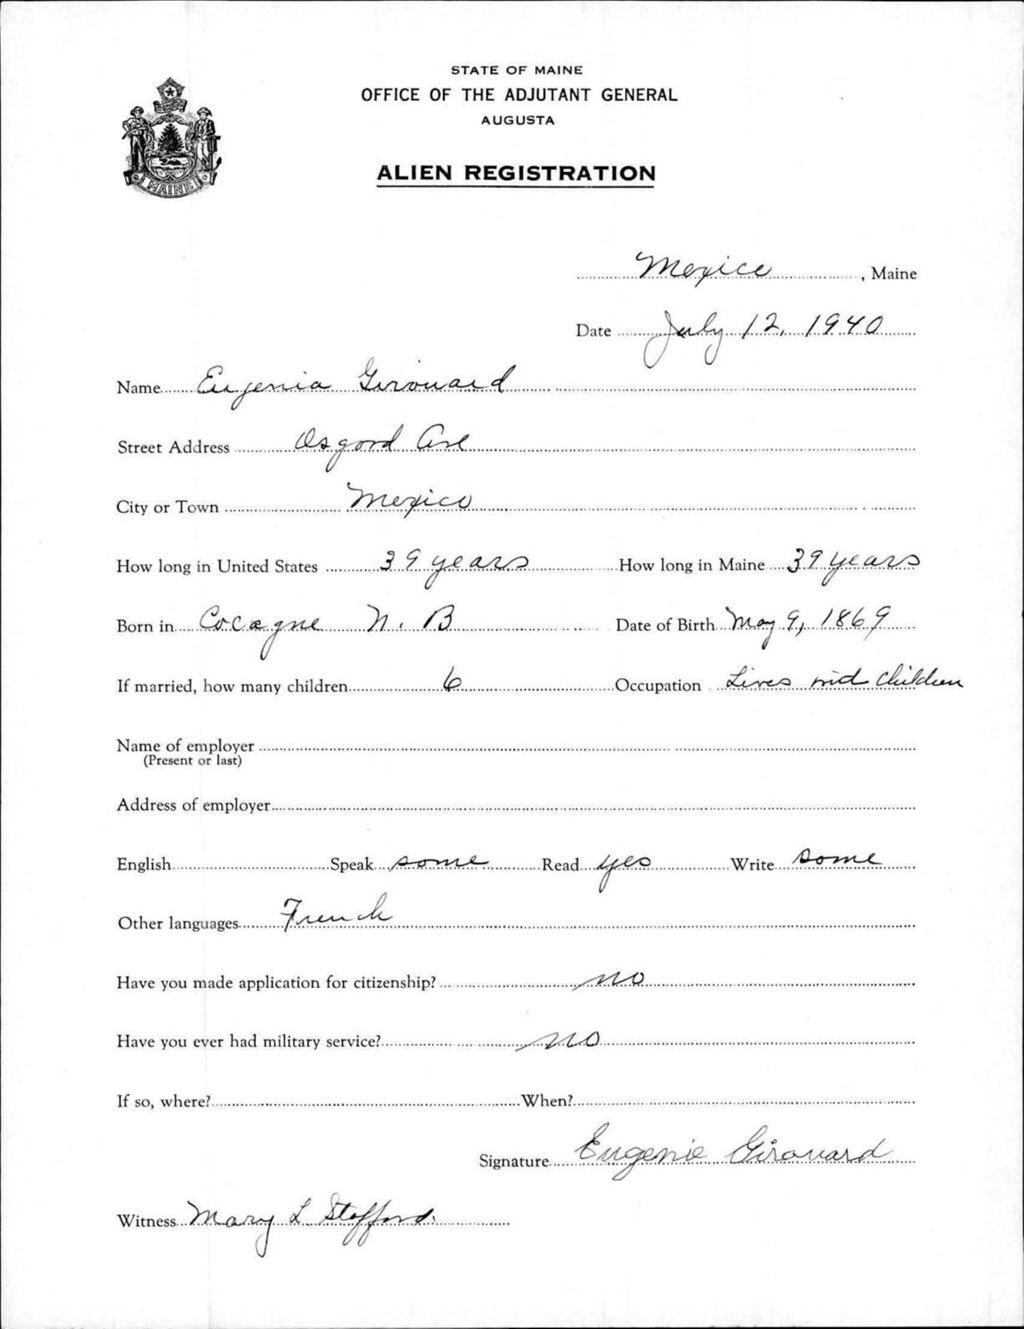 STATE OF MAINE
OFFICE OF THE ADJUTANT GENERAL
AUGUSTA
ALIEN REGISTRATION
MAINE
Mexico, Maine
Date July 12, 1940
Name Eugenia Girouard
Street Address Osgood Ave
City or Town Mexico
How long in United States 39 years How long in Maine 39 years
Born in Cocagne N. B Date of Birth May 9, 1869
If married, how many children 6 Occupation Lives children
Name of employer
(Present or last)
Address of employer
English Speak some Read yes Write some
Other languages French
Have you made application for citizenship? no
Have you ever had military service? no
If so, where? When?
Signature Eugenie Girouard
Witness Mary L Stafford.